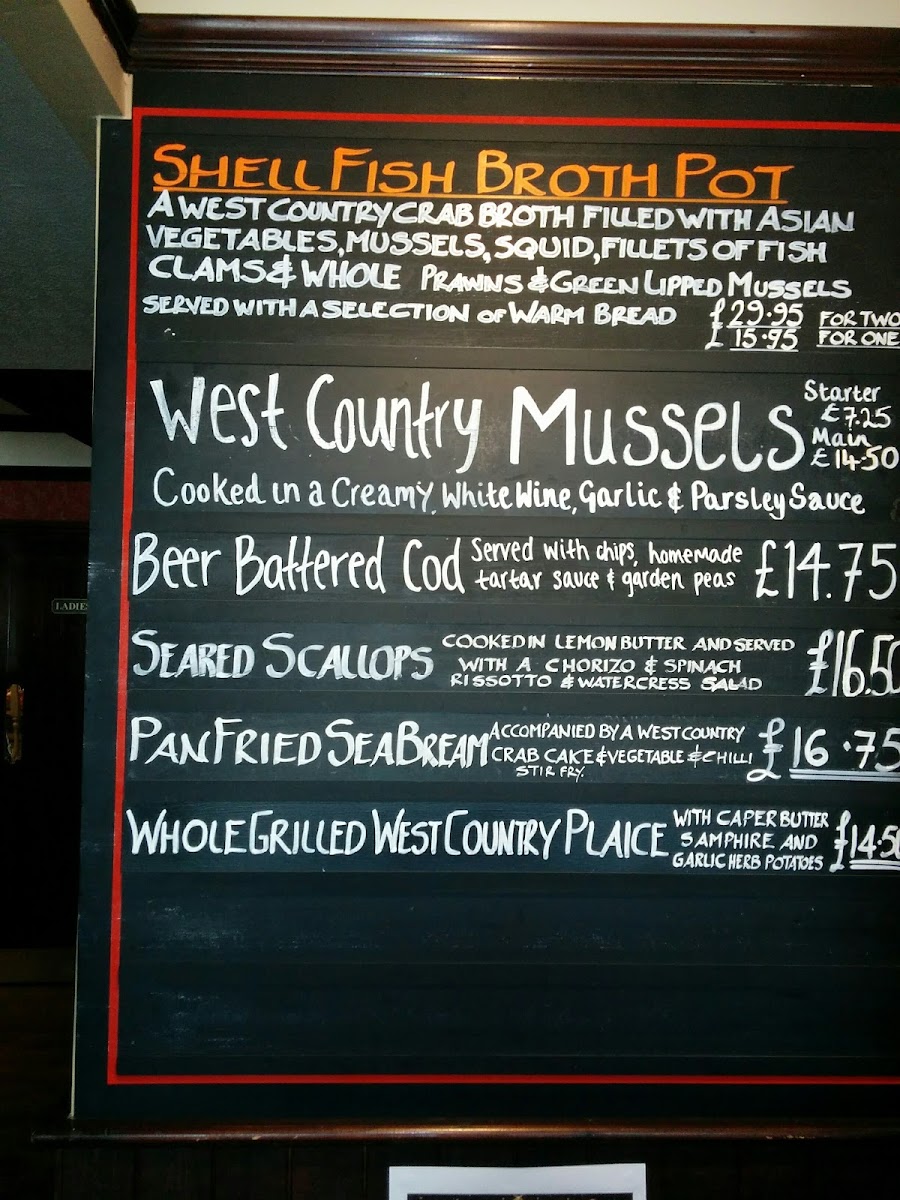 SHELL FISH BROTH POT
A WEST COUNTRY CRAB BROTH FILLED WITH ASIAN
VEGETABLES, MUSSELS, SQUID, FILLETS OF FISH
CLAMS & WHOLE PRAWNS & GREEN LIPPED MUSSELS
SERVED WITH A SELECTION OF WARM BREAD £29.95 FOR TWO
£15.95 FOR ONE
West Country Mussels
Starter
£7.25
Main
£14.50
Cooked in a Creamy, White Wine, Garlic & Parsley Sauce
Beer Battered Cod
Served with chips, homemade
tartar sauce & garden peas
£14.75
SEARED SCALLOPS
COOKED IN LEMON BUTTER AND SERVED
WITH A CHORIZO & SPINACH
RISSOTTO & WATERCRESS SALAD
£16.50
PAN FRIED SEA BREAM
ACCOMPANIED BY A WEST COUNTRY
CRAB CAKE & VEGETABLE & CHILLI
STIR FRY.
£16.75
WHOLE GRILLED WEST COUNTRY PLAICE
WITH CAPER BUTTER
SAMPHIRE AND
GARLIC HERB POTATOES
£14.50
LADIES